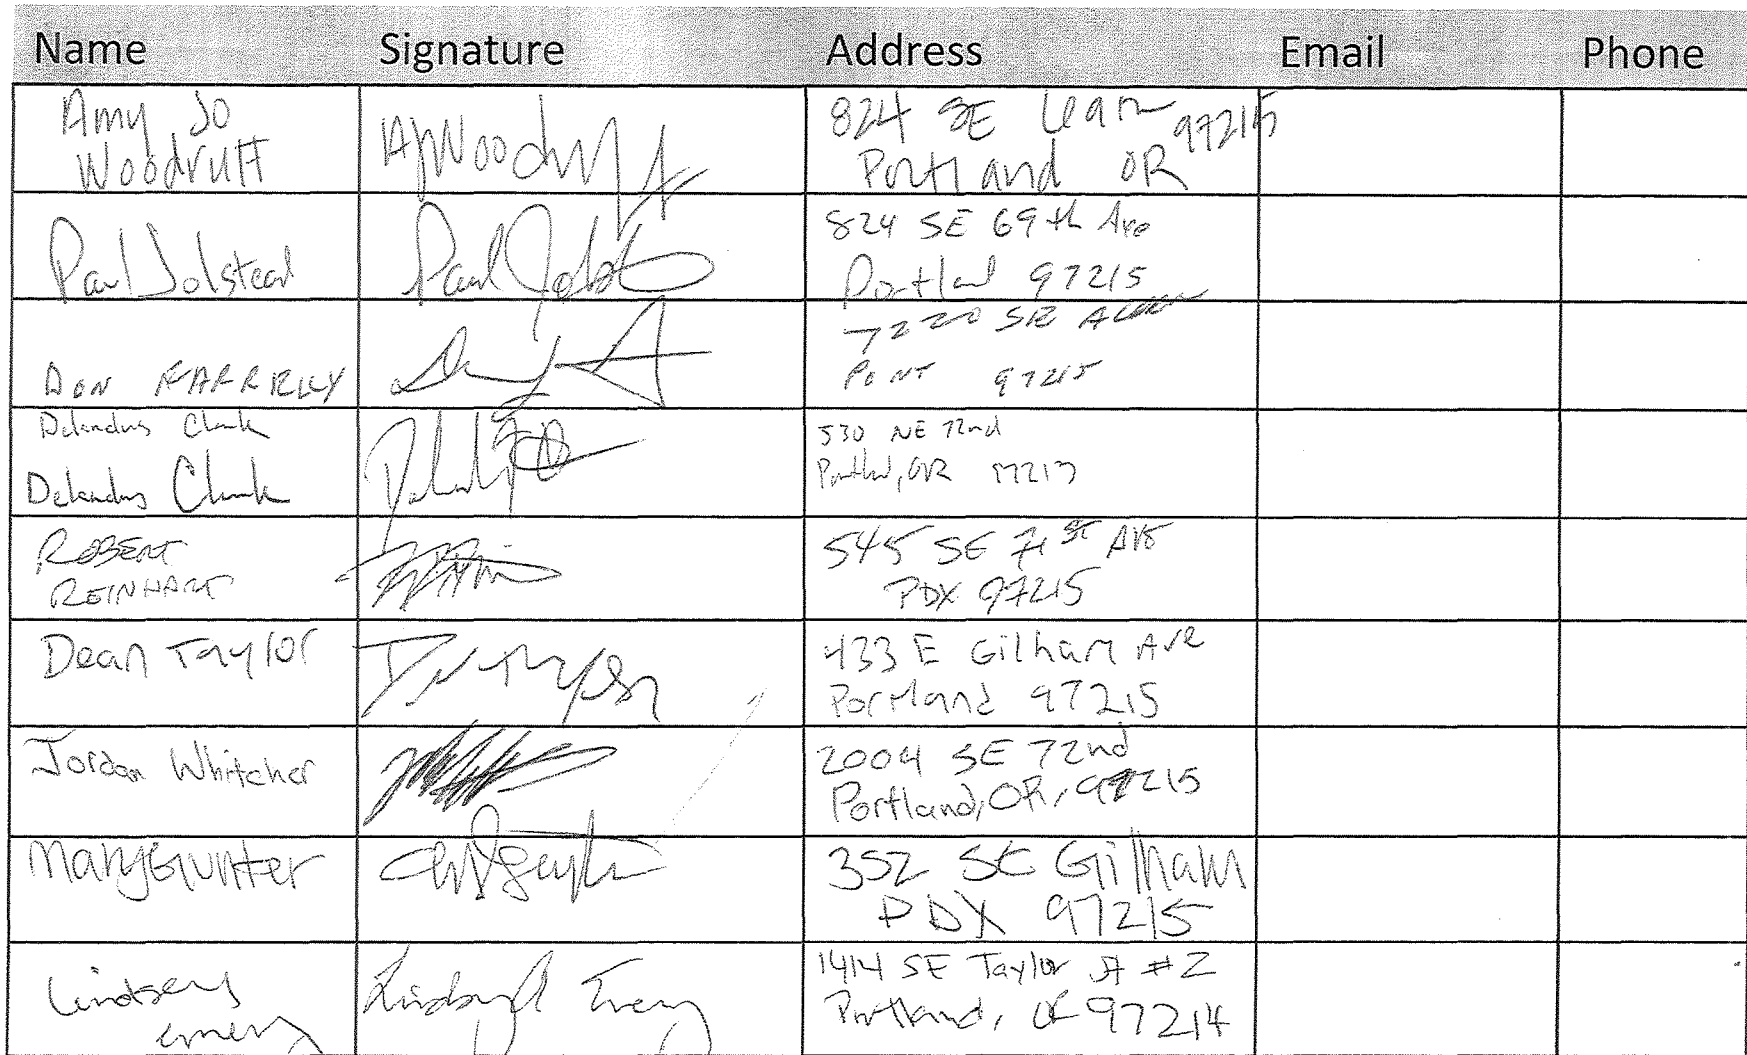 Name Signature Address Email Phone
Amy Jo
Woodruff
AJWoodruff
824 SE
97215
Portland OR
Paul Jolstead
Paul
824 SE 69th Ave
Portland 97215
DON FARRELLY
7220 SE
97215
Delandus Clark
Delandus Clark
530 NE 72nd
Portland, OR 97213
ROBERT
REINHART
545 SE 71st AVE
PDX 97215
Dean Taylor
433 E Gilham Ave
Portland 97215
Jordan Whitcher
2004 SE 72nd
Portland, OR, 97215
Mary Gunter
352 SE Gilham
PDX 97215
Lindsey
emery
Lindsey Emery
1414 SE Taylor St #2
Portland, OR 97214